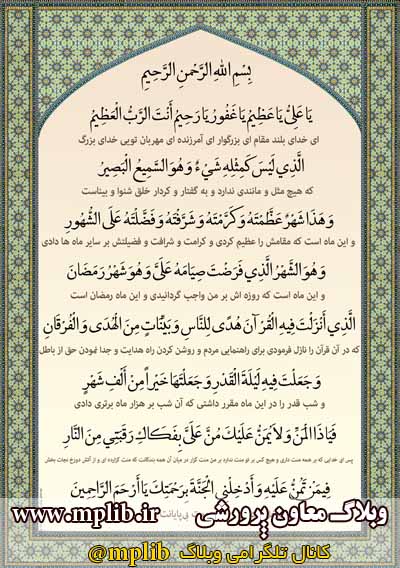 بِسْمِ اللهِ الرَّحْمنِ الرَّحِيمِ
يَا عَلِيُّ يَا عَظِيمُ يَا غَفُورُ يَا رَحِيمُ أَنْتَ الرَّبُّ الْعَظِيمُ
ای خدای بلند مقام ای بزرگوار ای آمرزنده ای مهربان تویی خدای بزرگ
الَّذِي لَيْسَ كَمِثْلِهِ شَيْءٌ وَهُوَ السَّمِيعُ الْبَصِيرُ
که هیچ مثل و مانندی ندارد و به گفتار و کردار خلق شنوا و بیناست
وَ هَذَا شَهْرٌ عَظَّمْتَهُ وَ كَرَّمْتَهُ وَ شَرَّفْتَهُ وَ فَضَّلْتَهُ عَلَى الشُّهُورِ
و این ماه است که مقامش را عظیم کردی و کرامت و شرافت و فضیلتش بر سایر ماه ها دادی
وَ هُوَ الشَّهْرُ الَّذِي فَرَضْتَ صِيَامَهُ عَلَيَّ وَ هُوَ شَهْرُ رَمَضَانَ
و این ماه است که روزه اش بر من واجب گردانیدی و این ماه رمضان است
الَّذِي أَنْزَلْتَ فِيهِ الْقُرْآنَ هُدًى لِلنَّاسِ وَ بَيِّنَاتٍ مِنَ الْهُدَى وَ الْفُرْقَانِ
که در آن قرآن را نازل فرمودی برای راهنمایی مردم و روشن کردن راه هدایت و جدا نمودن حق از باطل
وَ جَعَلْتَ فِيهِ لَيْلَةَ الْقَدْرِ وَ جَعَلْتَهَا خَيْراً مِنْ أَلْفِ شَهْرٍ
و شب قدر را در این ماه مقرر داشتی که آن شب بر هزار ماه برتری دادی
فَيَا ذَا الْمَنِّ وَ لاَ يُمَنُّ عَلَيْكَ مُنَّ عَلَيَّ بِفَكَاكِ رَقَبَتِي مِنَ النَّارِ
پس ای خدایی که بر همه منت داری و هیچ کس بر تو منت ندارد بر من منت گزار در میان آن همه بندگانت که منت گزارده ای و از آتش دوزخ نجات بخش
فِيمَنْ تَمُنُّ عَلَيْهِ وَ أَدْخِلْنِي الْجَنَّةَ بِرَحْمَتِكَ يَا أَرْحَمَ الرَّاحِمِينَ
بی‌پایانت
وبلاگ معاون پرورشی www.mplib.ir
کانال تلگرامی وبلاگ @mplib